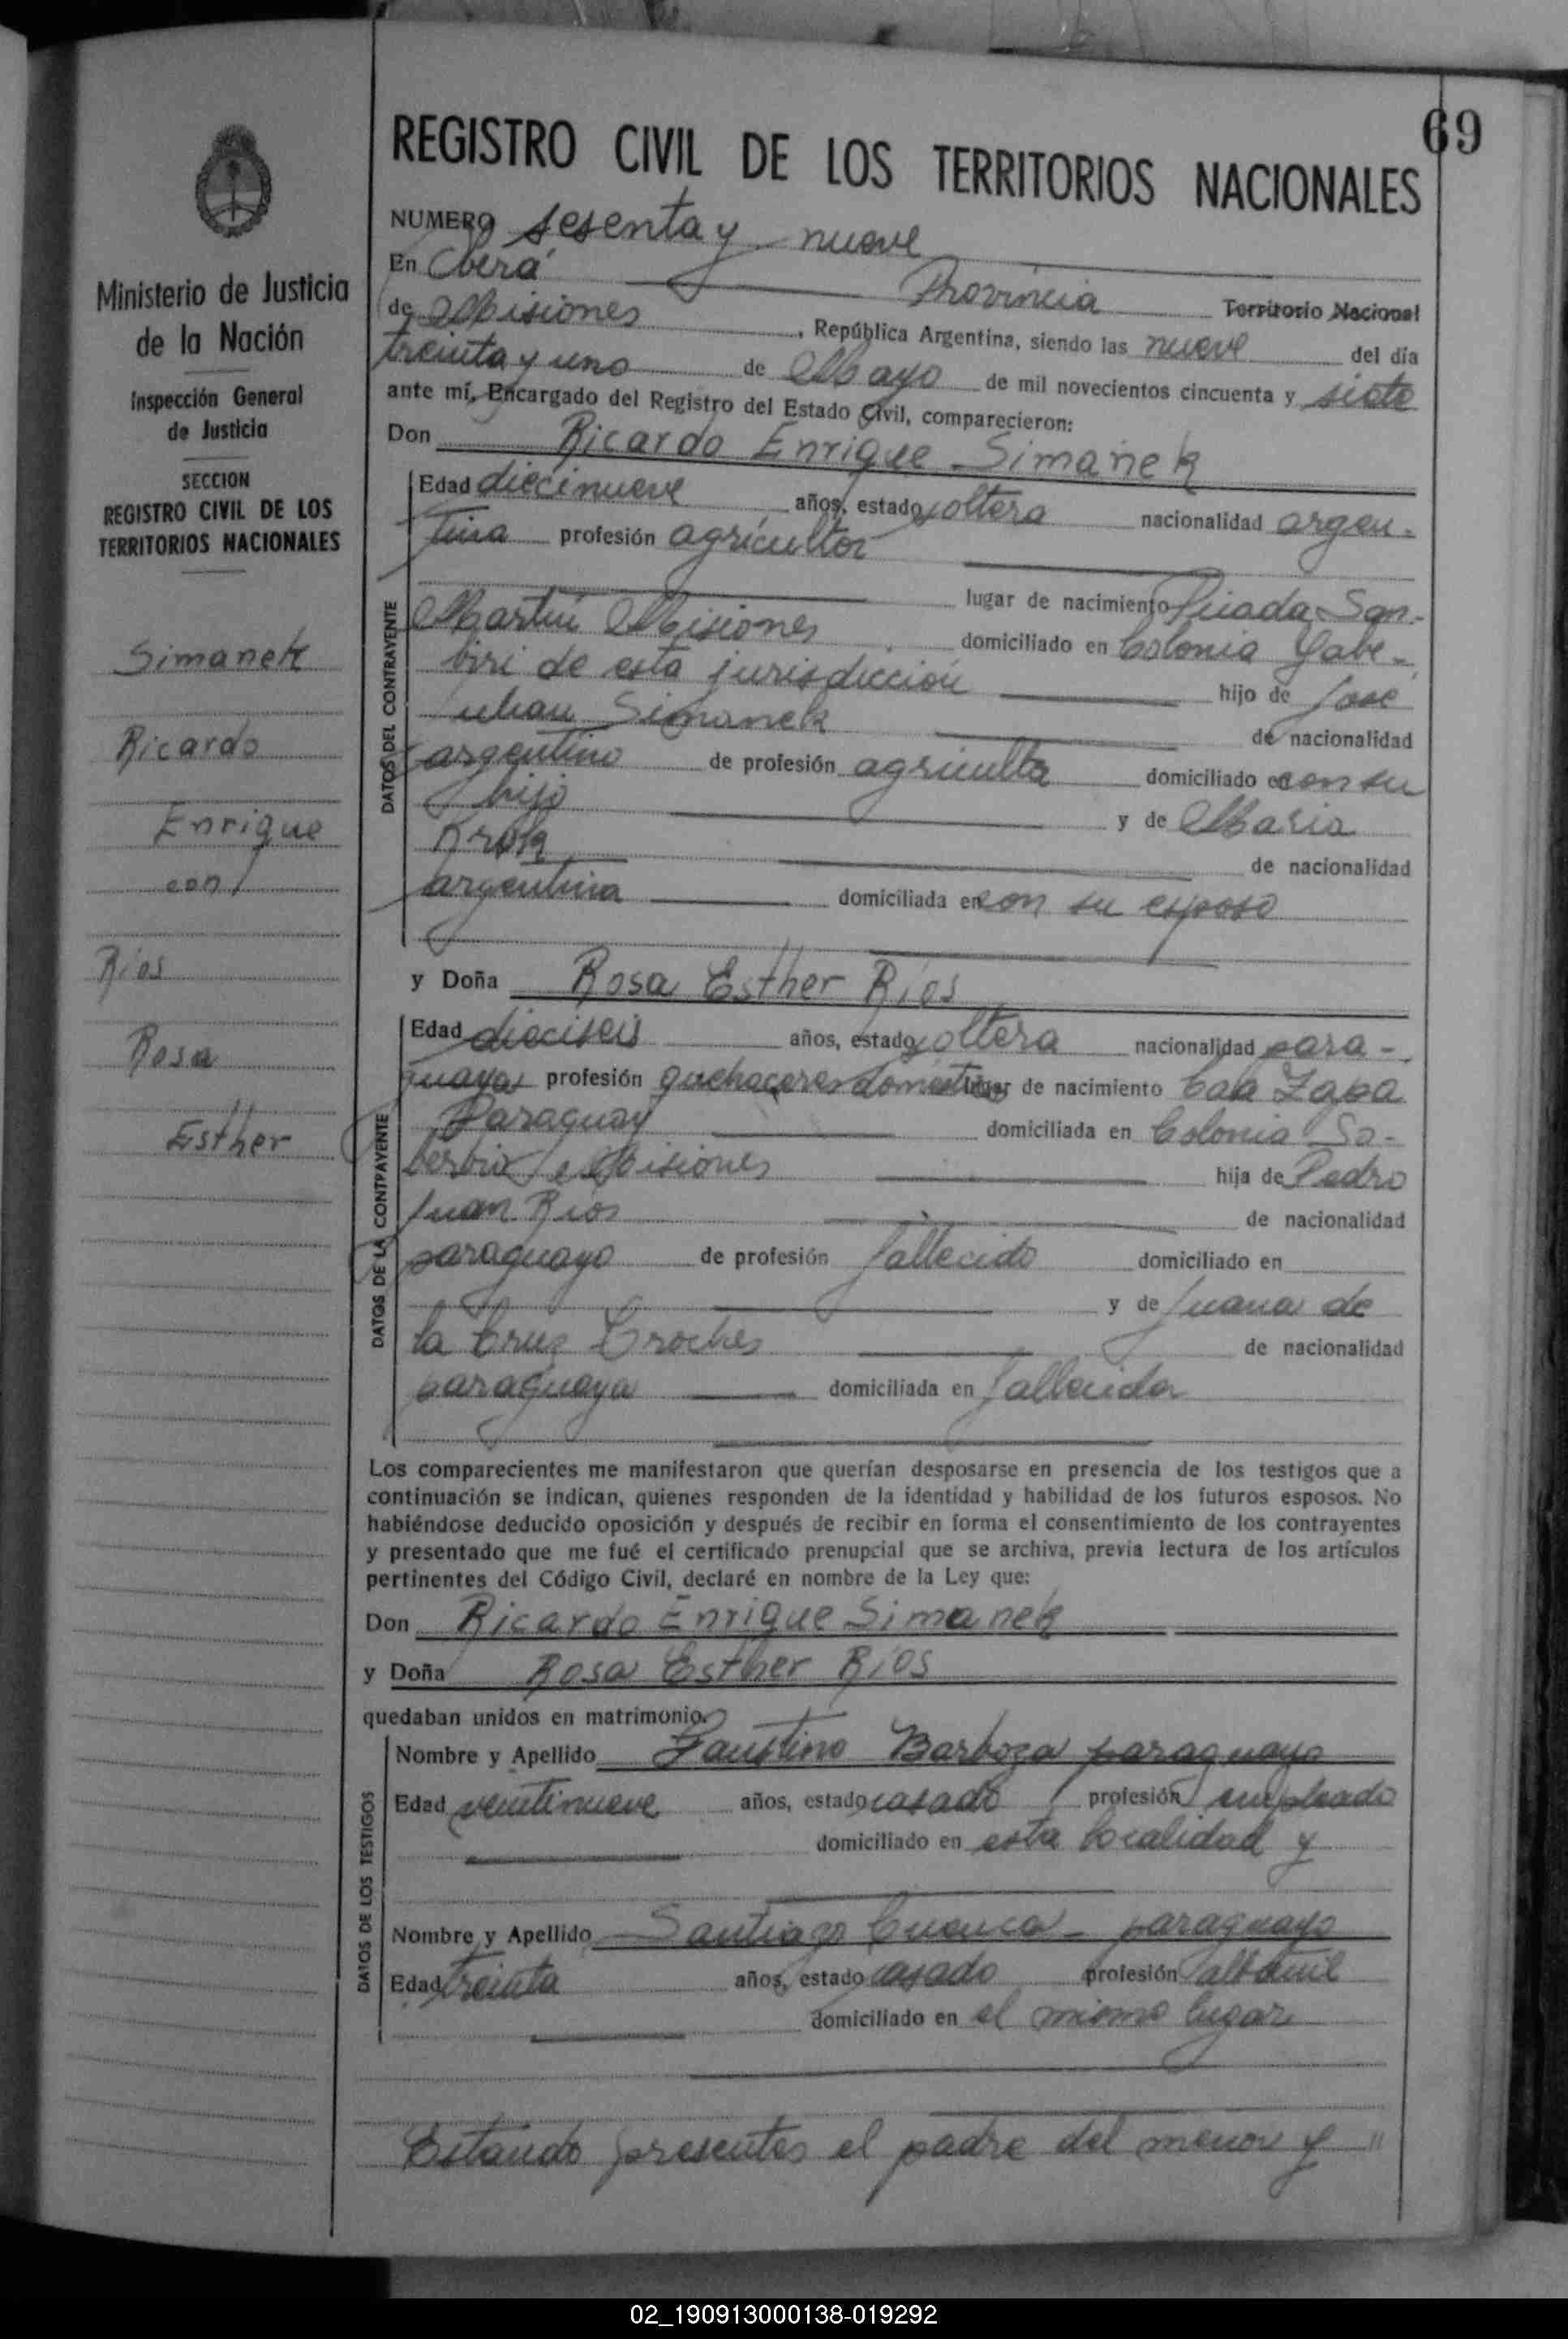 69
REGISTRO CIVIL DE LOS TERRITORIOS NACIONALES
Ministerio de Justicia
de la Nación
Inspección General
de Justicia
SECCION
REGISTRO CIVIL DE LOS
TERRITORIOS NACIONALES
Simanek
Ricardo
Enrique
con
Ríos
Rosa
Esther
NUMERO sesenta y nueve
En Oberá Provincia Territorio Nacional
de Misiones, República Argentina, siendo las nueve del día
treinta y uno de Mayo de mil novecientos cincuenta y siete
ante mí, Encargado del Registro del Estado Civil, comparecieron:
Don Ricardo Enrique Simanek
DATOS DEL CONTRAYENTE
Edad diecinueve años, estado soltero nacionalidad argen-
tina profesión agricultor
lugar de nacimiento Picada San
Martín Misiones domiciliado en Colonia Yabe-
birí de esta jurisdicción hijo de José
Julian Simanek de nacionalidad
argentino de profesión agricultor domiciliado en con su
hijo y de Maria
Krok de nacionalidad
argentina domiciliada en con su esposo
y Doña Rosa Esther Ríos
DATOS DE LA CONTRAYENTE
Edad dieciseis años, estado soltera nacionalidad para-
guaya profesión quehaceres domésticos lugar de nacimiento Caá Zapa
Paraguay domiciliada en Colonia
Misiones hija de Pedro
Juan Ríos de nacionalidad
paraguayo de profesión fallecido domiciliado en
y de Juana de
la Cruz de nacionalidad
paraguaya domiciliada en fallecida
Los comparecientes me manifestaron que querían desposarse en presencia de los testigos que a
continuación se indican, quienes responden de la identidad y habilidad de los futuros esposos. No
habiéndose deducido oposición y después de recibir en forma el consentimiento de los contrayentes
y presentado que me fué el certificado prenupcial que se archiva, previa lectura de los artículos
pertinentes del Código Civil, declaré en nombre de la Ley que:
Don Ricardo Enrique Simanek
y Doña Rosa Esther Ríos
quedaban unidos en matrimonio.
DATOS DE LOS TESTIGOS
Nombre y Apellido Faustino Barboza paraguayo
Edad veintinueve años, estado casado profesión empleado
domiciliado en esta localidad y
Nombre y Apellido Santiago Cuenca - paraguayo
Edad treinta años, estado casado profesión albañil
domiciliado en el mismo lugar
Estando presentes el padre del menor y "
02_190913000138-019292